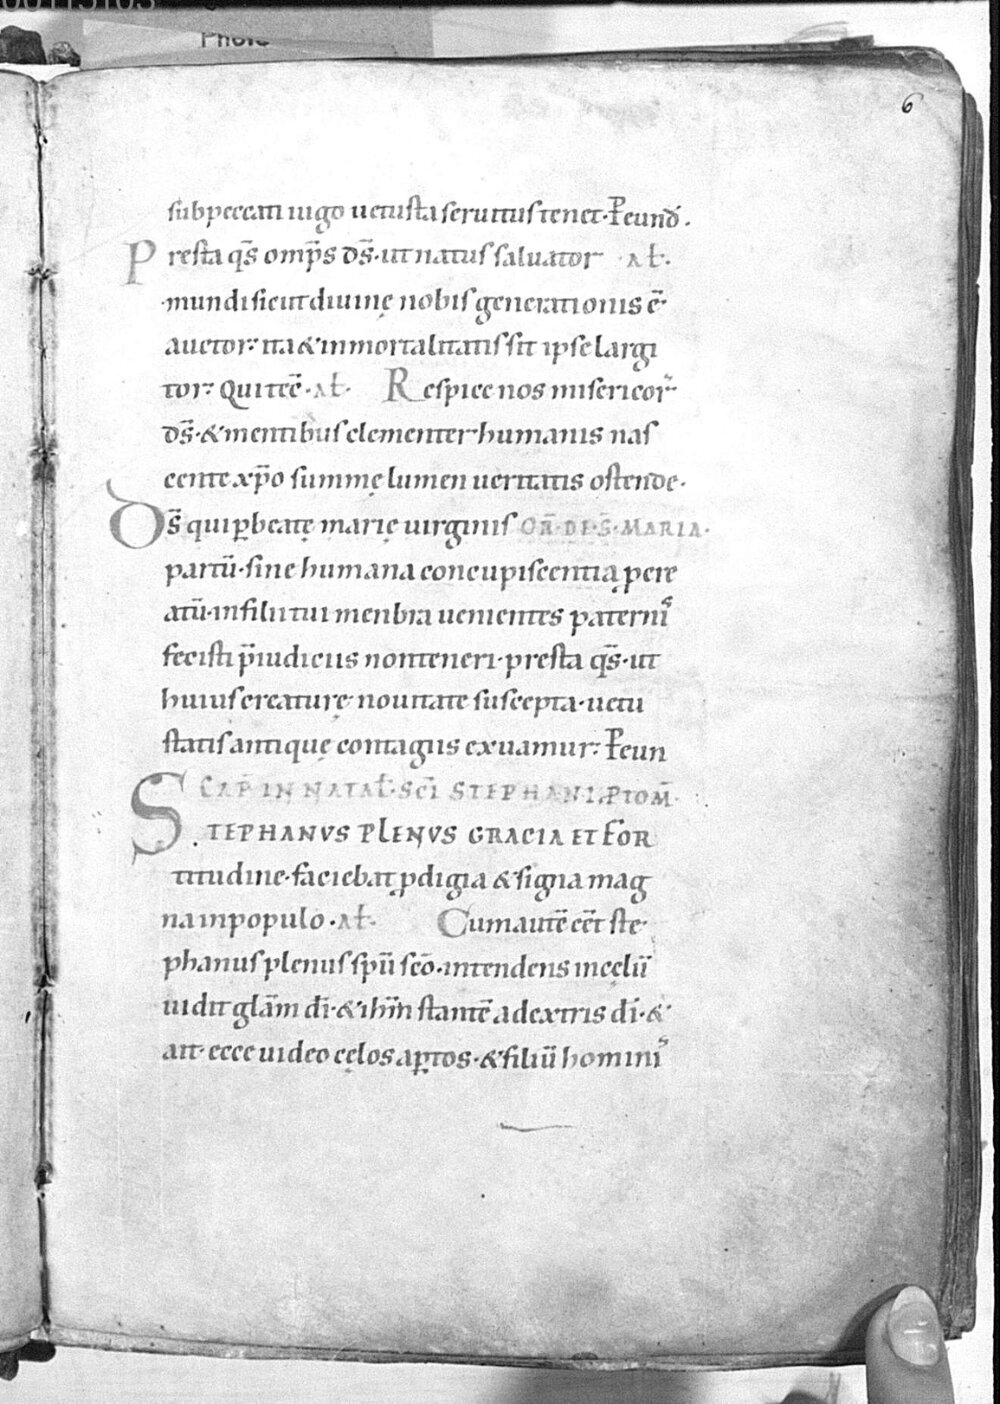 6
sub peccati iugo uetusta seruitus tenet· P̄ eund̄.
Presta q̄s omp̄s d̄s· ut natus saluator · al̄·
mundi sicut diuinę nobis generationis ē
auctor· ita & inmortalitatis sit ipse largi
tor· Qui tecē· al̄· Respice nos misericor̄
d̄s· & mentibus clementer humanis nas
cente xp̄o summę lumen ueritatis ostende·
D̄s qui p̱ beatę marię uirginis OR̄· DE· S̄· MARIA·
partū· sine humana concupiscentia p̱cre
atū· in filii tui menbra uenientes paterni᷒
fecisti p̄iudiciis non teneri· presta q̄s· ut
huius creaturę nouitate suscepta· uetu
statis antiquę contagiis exuamur· P̄ eun
CAP̄ IN NATAL̄· SC̄I STEPHANI· P̄TOM̄·
STEPHANVS PLENVS GRACIA ET FOR
titudine· faciebat ꝓdigia & signa mag
na in populo· al̄· Cum autē eēt ste
phanus plenus sp̄u sc̄o· intendens in cęlū
uidit gl̄am d̄i· & ih̄m stantē a dextris d̄i· &
ait· ecce uideo cęlos ap̱tos· & filiū homini᷒